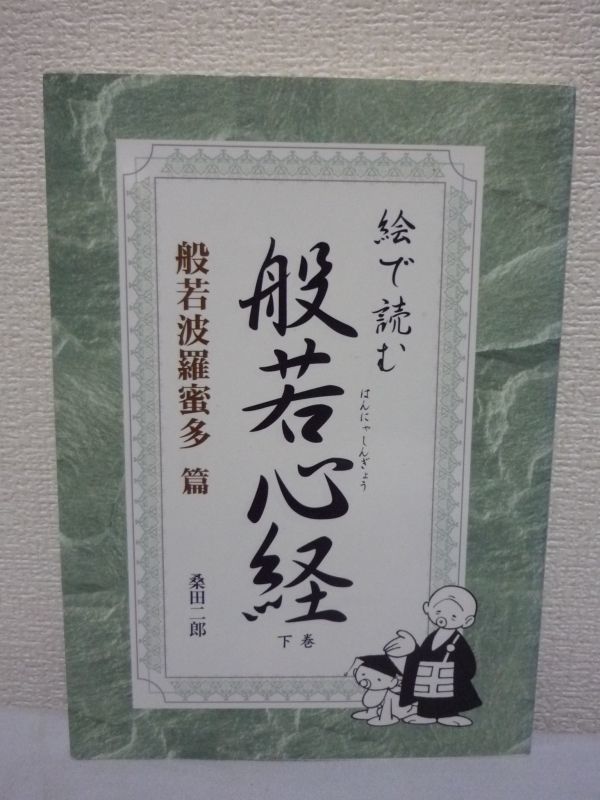 絵で読む
般若心経
はんにゃしんぎょう
下巻
般若波羅蜜多 篇
桑田二郎